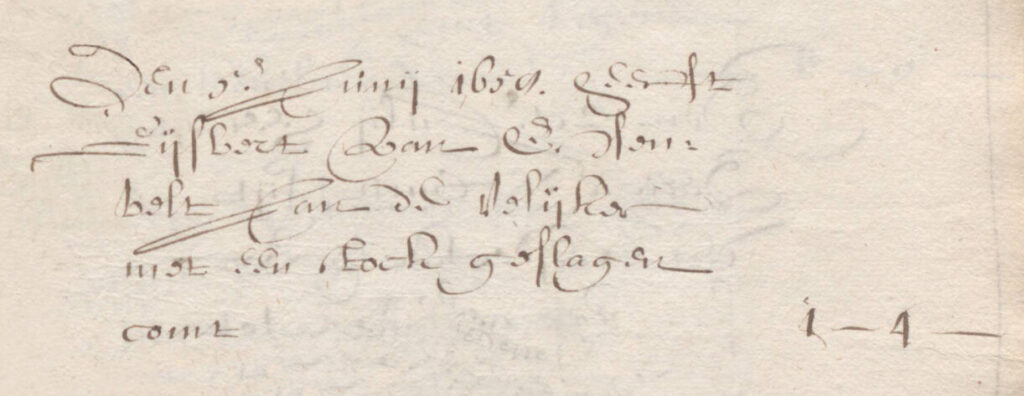 Den 5e. Junij 1659. heeft
Gijsbert van E. Steen-
belt Jan de Velijker
met een stock geslagen
comt 1 - 4 -